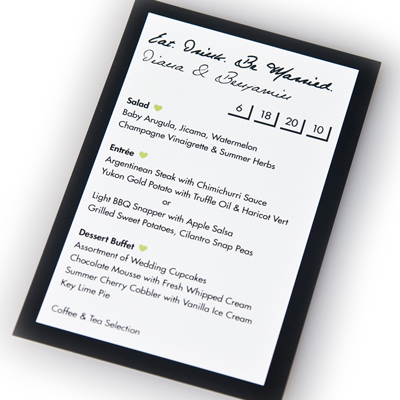 Eat. Drink. Be Married.
Diana & Benjamin
6 18 20 10
Salad
Baby Arugula, Jicama, Watermelon
Champagne Vinaigrette & Summer Herbs
Entrée
Argentinean Steak with Chimichurri Sauce
Yukon Gold Potato with Truffle Oil & Haricot Vert
or
Light BBQ Snapper with Apple Salsa
Grilled Sweet Potatoes, Cilantro Snap Peas
Dessert Buffet
Assortment of Wedding Cupcakes
Chocolate Mousse with Fresh Whipped Cream
Summer Cherry Cobbler with Vanilla Ice Cream
Key Lime Pie
Coffee & Tea Selection